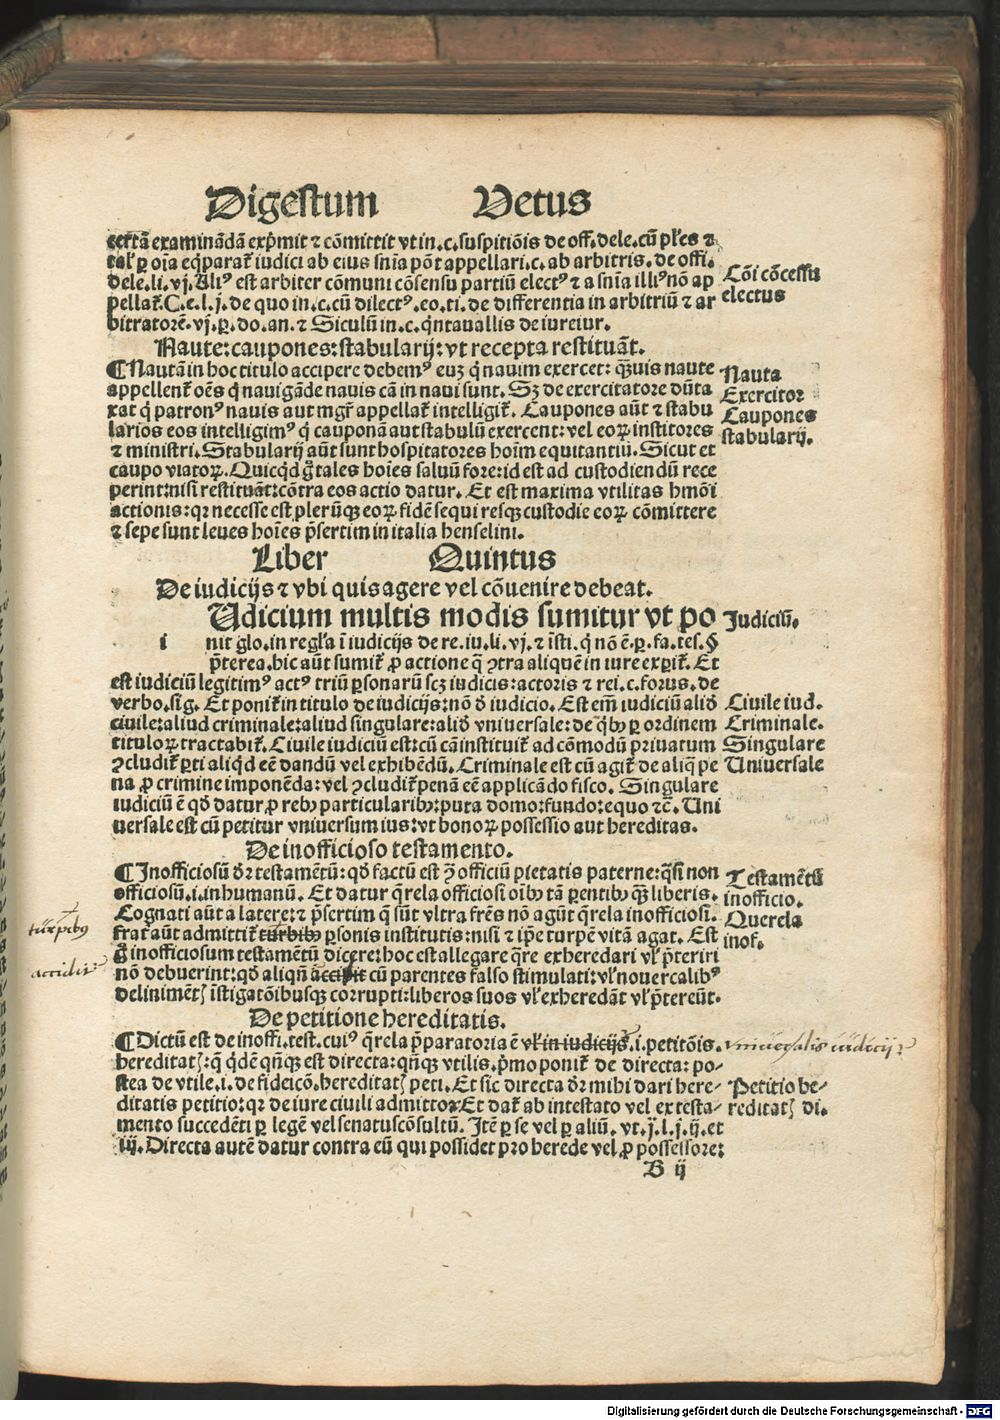 Digestum Vetus
certã examinãdã exp̃mit ⁊ cõmittit vt in.c.suspitiõis de off.dele.cũ pl'es ⁊
tal' ꝑ oĩa eq̃parat᷑ iudici ab eius sñia põt appellari.c.ab arbitris.de offi.
dele.li.vj.Aliꝰ est arbiter cõmuni cõsensu partiũ electꝰ ⁊ a sñia illiꝰ nõ ap
pellat᷑.C.e.l.j.de quo in.c.cũ dilectꝰ.eo.ti.de differentia in arbitriũ ⁊ ar
bitratorẽ.vj.ꝑ.do.an.⁊ Siculũ in.c.q̃ntauallis de iureiur.
Cõi cõcessu
electus
Naute:caupones:stabularij:vt recepta restituãt.
¶Nautã in hoc titulo accipere debemꝰ euꝫ q̃ nauim exercet:q̃uis naute
appellent᷑ oẽs q̃ nauigãde nauis cã in naui sunt.Sꝫ de exercitatore dũta
xat q̃ patronꝰ nauis aut mgr̃ appellat᷑ intelligit᷑.Caupones aũt ⁊ stabu
larios eos intelligimꝰ q̃ cauponã aut stabulũ exercent:vel eoꝝ institores
⁊ ministri.Stabularij aũt sunt hospitatores hoĩm equitantiũ.Sicut et
caupo viatoꝝ.Quicq̃d g̃ tales hoĩes saluũ fore:id est ad custodiendũ rece
perint:nisi restituãt:cõtra eos actio datur.Et est maxima vtilitas hmõi
actionis:qꝛ necesse est plerũqꝫ eoꝝ fidẽ sequi resqꝫ custodie eoꝝ cõmittere
⁊ sepe sunt leues hoĩes p̃sertim in italia henselini.
Nauta
Exercitor
Caupones
stabularij.
Liber Quintus
De iudicijs ⁊ vbi quis agere vel cõuenire debeat.
Udicium multis modis sumitur vt po
i nit glo.in regl'a ĩ iudicijs de re.iu.li.vj.⁊ ĩsti.q̃ nõ ẽ.ꝑ.fa.tes.§
p̃terea.hic aũt sumit᷑ ꝓ actione q̃ ꝯtra aliquẽ in iure exꝑit᷑.Et
est iudiciũ legitimꝰ actꝰ triũ ꝑsonarũ scꝫ iudicis:actoris ⁊ rei.c.forus.de
verbo.sig.Et ponit᷑ in titulo de iudicijs:nõ ð iudicio.Est em̃ iudiciũ alið
ciuile:aliud criminale:aliud singulare:alið vniuersale:de q̃bꝫ ꝑ ordinem
tituloꝝ tractabit᷑.Ciuile iudiciũ est:cũ cã instituit᷑ ad cõmodũ priuatum
ꝯcludit᷑ ꝑti aliq̃d eẽ dandũ vel exhibẽdũ.Criminale est cũ agit᷑ de aliq̃ pe
na ꝓ crimine imponẽda:vel ꝯcludit᷑ penã eẽ applicãdo fisco.Singulare
iudiciũ ẽ qð datur ꝓ rebꝫ particularibꝫ:puta domo:fundo:equo ⁊c̃.Uni
uersale est cũ petitur vniuersum ius:vt bonoꝝ possessio aut hereditas.
Judiciũ.
Ciuile iud'.
Criminale.
Singulare
Uniuersale
De inofficioso testamento.
¶Inofficiosũ ðr testamẽtũ:qð factũ est ꝯ̃ officiũ pietatis paterne:q̃si non
officiosũ.i.inhumanũ.Et datur q̃rela officiosi oĩbꝫ tã ꝑentibꝫ q̃ꝫ liberis.
Cognati aũt a latere:⁊ p̃sertim q̃ sũt vltra fr̃es nõ agũt q̃rela inofficiosi.
frat᷑ aũt admittit᷑ turbibꝫ ꝑsonis institutis:nisi ⁊ ip̃e turpẽ vitã agat.Est
g̃ inofficiosum testamẽtũ dicere:hoc est allegare q̃re exheredari vl' p̃teriri
nõ debuerint:qð aliqñ accipit cũ parentes falso stimulati:vl' nouercalibꝰ
delinimẽtꝭ ĩstigatõibusqꝫ corrupti:liberos suos vl' exheredãt vl' p̃tereũt.
Testamẽtũ
inofficio.
Querela
inof.
turpibꝰ
accidit
De petitione hereditatis.
¶Dictũ est de inoffi.test.cuiꝰ q̃rela p̃paratoria ẽ vl' in iudicijs.i.petitõis.
hereditatꝭ:q̃ q̃dẽ qñqꝫ est directa:qñqꝫ vtilis.p̃mo ponit᷑ de directa:po-
stea de vtile.i.de fideicõ.hereditatꝭ peti.Et sic directa ðr mihi dari here-
ditatis petitio:qꝛ de iure ciuili admittor.Et dat᷑ ab intestato vel ex testa-
mento succedẽti ꝑ legẽ vel senatuscõsultũ.Itẽ ꝑ se vel ꝑ aliũ.vt.j.l.j.ij.et
iij.Directa autẽ datur contra eũ qui possidet pro herede vel ꝓ possessore:
vniuersalis iudicij
Petitio he-
reditatꝭ di.
B ij
Digitalisierung gefördert durch die Deutsche Forschungsgemeinschaft - DFG